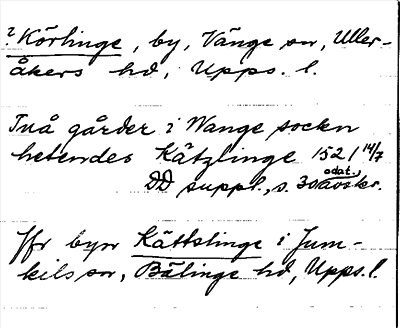 ? Körlinge, by, Vänge sn, Uller-
åkers hd, Upps. l.
Två gårder i Wange socken
hetendes Kätzlinge 1521 14/7
DD suppl., s. 30 odat. avskr.
Jfr byn Kättslinge i Jum-
kils sn, Bälinge hd, Upps. l.